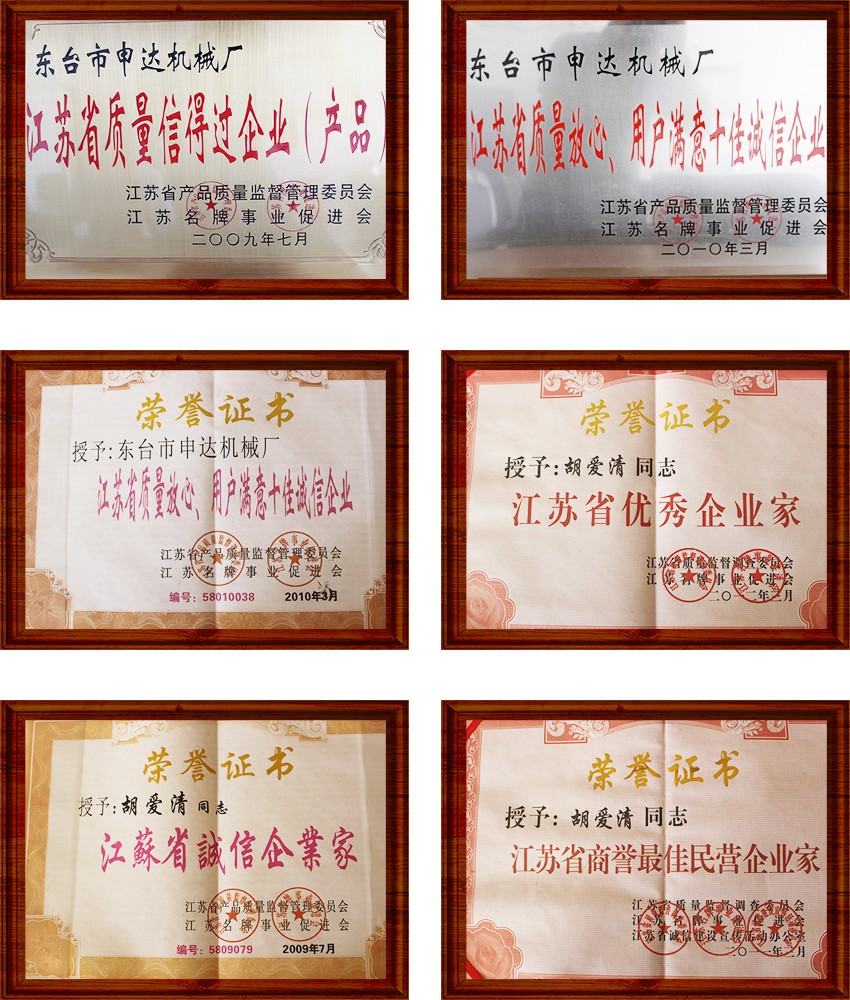 东台市申达机械厂
江苏省质量信得过企业（产品）
江苏省产品质量监督管理委员会
江苏名牌事业促进会
二〇〇九年七月
东台市申达机械厂
江苏省质量放心、用户满意十佳诚信企业
江苏省产品质量监督管理委员会
江苏名牌事业促进会
二〇一〇年三月
荣誉证书
授予:东台市申达机械厂
江苏省质量放心、用户满意十佳诚信企业
江苏省产品质量监督管理委员会
江苏名牌事业促进会
编号：58010038 2010年3月
荣誉证书
授予:胡爱清 同志
江苏省优秀企业家
江苏省质量监督调查委员会
江苏名牌事业促进会
荣誉证书
授予:胡爱清 同志
江蘇省誠信企業家
江苏省产品质量监督管理委员会
江苏名牌事业促进会
编号：5809079 2009年7月
荣誉证书
授予：胡爱清 同志
江苏省商誉最佳民营企业家
江苏省质量监督调查委员会
江苏名牌事业促进会
江苏省诚信建设宣传活动办公室